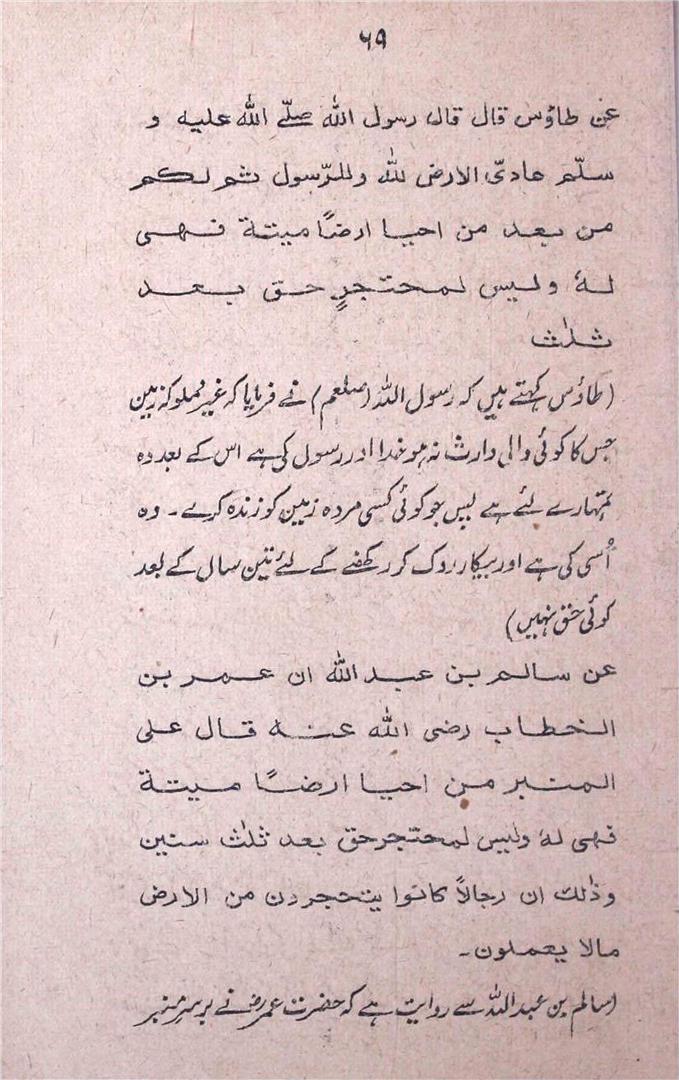 ۶۹
عن طاؤس قال قال رسول الله صلّے الله عليه و
سلّم عادىّ الارض لله وللرّسول ثم لكم
من بعد من احيا ارضًا ميتة فهى
لهٗ وليس لمحتجرٍ حق بعد
ثلٰث
(طاؤس کہتے ہیں کہ رسول اللہ (صلعم) نے فرمایا کہ غیر مملوکہ زمین
جس کا کوئی والی وارث نہ ہو خدا اور رسول کی ہے اس کے بعد وہ
تمہارے لئے ہے پس جو کوئی کسی مردہ زمین کو زندہ کرے۔ وہ
اُسی کی ہے اور بیکار روک کر رکھنے کے لئے تین سال کے بعد
کوئی حق نہیں)
عن سالم بن عبد الله ان عمر بن
الخطاب رضى الله عنه قال على
المنبر من احيا ارضًا ميتة
فهى لهٗ وليس لمحتجر حق بعد ثلٰث سنين
وذٰلك ان رجالاً كانوا يتحجردن من الارض
مالا يعملون۔
(سالم بن عبد اللہ سے روایت ہے کہ حضرت عمرؓ نے برسرِ منبر